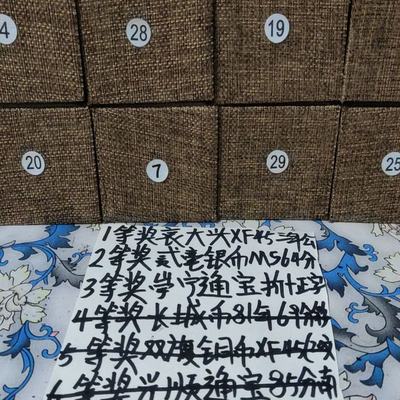 4 28 19
20 7 29 25
1等奖袁大头XF45三年公
2等奖贰毫银币MS64分
3等奖崇宁通宝折十真字
4等奖长城币81年67分
5等奖双旗铜币XF45
6等奖兴顺通宝85分南